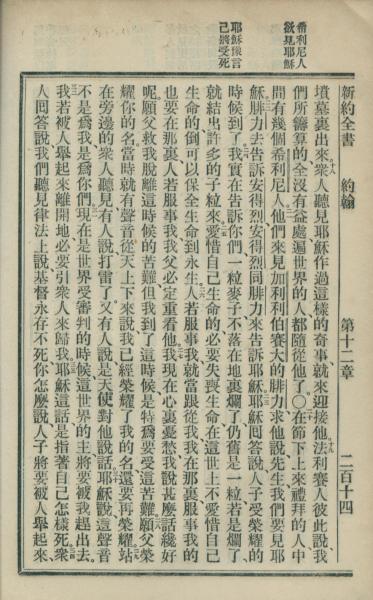 新約全書 約翰 第十二章 二百十四
希利尼人
欲見耶穌
耶穌豫言
己將受死
墳墓裏出來衆人聽見耶穌作過這樣的奇事就來迎接他法利賽人彼此說我
們所籌算的全沒有益處遍世界的人都隨從他了〇在節下上來禮拜的人中
間有幾個希利尼人他們來見加利利伯賽大的腓力求他說先生我們要見耶
穌腓力去告訴安得烈安得烈同腓力來告訴耶穌耶穌囘答說人子受榮耀的
時候到了我實在告訴你們一粒麥子不落在地裏爛了仍舊是一粒若是爛了
就結出許多的子粒來愛惜自己生命的必要失喪生命在這世上不愛惜自己
生命的倒可以保全生命到永生人若服事我就當跟從我我在那裏服事我的
也要在那裏人若服事我我父必定重看他我現在心裏憂愁我說甚麼話纔好
呢願父救我脫離這時候的苦難但我到了這時候是特爲要受這苦難願父榮
耀你的名當時就有聲音從天上下來說我已經榮耀了我的名還要再榮耀站
在旁邊的衆人聽見有人說打雷了又有人說是天使對他說話耶穌說這聲音
不是爲我是爲你們現在是世界受審判的時候這世界的主將要被我趕出去
我若被人舉起來離開地必要引衆人來歸我耶穌這話是指著自己怎樣死衆
人囘答說我們聽見律法上說基督永存不死你怎麼說人子將要被人舉起來